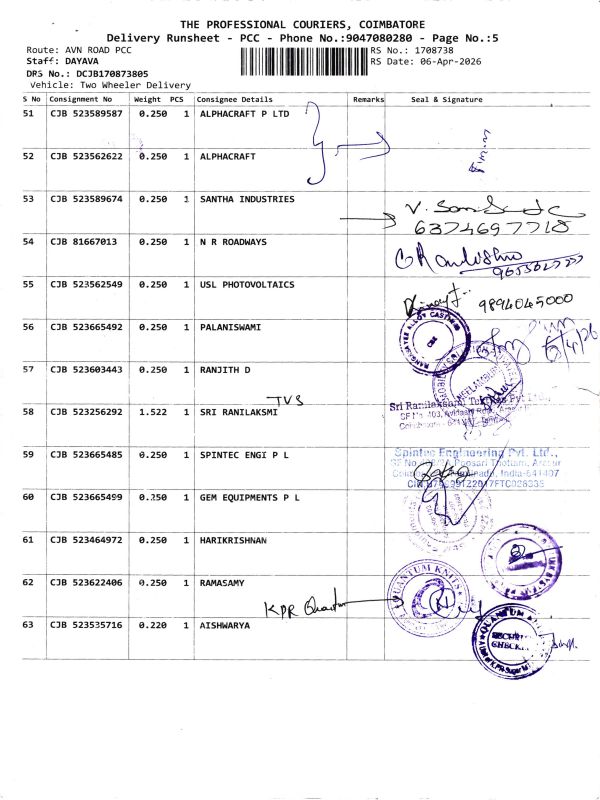 THE PROFESSIONAL COURIERS, COIMBATORE
Delivery Runsheet - PCC - Phone No.:9047080280 - Page No.:5
Route: AVN ROAD PCC RS No.: 1708738
Staff: DAYAVA RS Date: 06-Apr-2026
DRS No.: DCJB170873805
Vehicle: Two Wheeler Delivery
S No Consignment No Weight PCS Consignee Details Remarks Seal & Signature
51 CJB 523589587 0.250 1 ALPHACRAFT P LTD
52 CJB 523562622 0.250 1 ALPHACRAFT
53 CJB 523589674 0.250 1 SANTHA INDUSTRIES
6374697718
54 CJB 81667013 0.250 1 N R ROADWAYS
55 CJB 523562549 0.250 1 USL PHOTOVOLTAICS
9894045000
56 CJB 523665492 0.250 1 PALANISWAMI
57 CJB 523603443 0.250 1 RANJITH D
TVS
58 CJB 523256292 1.522 1 SRI RANILAKSMI
Sri Ranilakshmi
59 CJB 523665485 0.250 1 SPINTEC ENGI P L
Spintec Engineering Pvt. Ltd.,
60 CJB 523665499 0.250 1 GEM EQUIPMENTS P L
61 CJB 523464972 0.250 1 HARIKRISHNAN
62 CJB 523622406 0.250 1 RAMASAMY
QUANTUM KNITS
KPR
63 CJB 523535716 0.220 1 AISHWARYA
QUANTUM